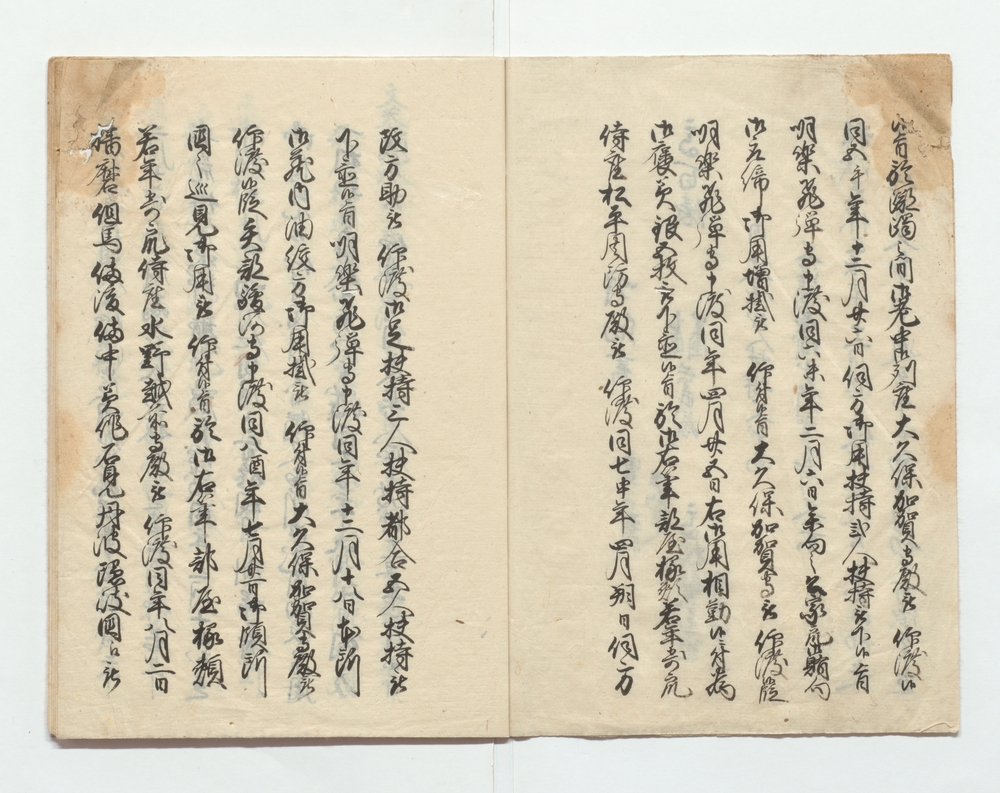 候旨於躑躅之間御老中列座大久保加賀守殿被 仰渡候
同五午年十二月廿六日伺方御用扶持弐人扶持被下候旨
明楽飛騨守申渡同六未年二月六日参向之公家衆賄向
御取締御用増掛被 仰付候旨大久保加賀守被 仰渡段
明楽飛騨守申渡同年四月廿五日右御用相勤候ニ付為
御褒美銀五枚被下置候旨於御右筆部屋椽頬若年寄衆
侍座松平周防守殿被 仰渡同七申年四月朔日伺方
改方助被 仰渡御足扶持三人扶持都合五人扶持被
下置候旨明楽飛騨守申渡同年十二月十八日本所
御蔵内油絞方御用掛被 仰付候旨大久保加賀守殿被
仰渡候段矢部駿河守申渡同八酉年七月 日御領所
国々巡見御用被 仰付候旨於御右筆部屋椽頬
若年寄衆侍座水野越前守殿被 仰渡同年八月二日
播磨但馬備後備中美作石見丹波隠岐国江被